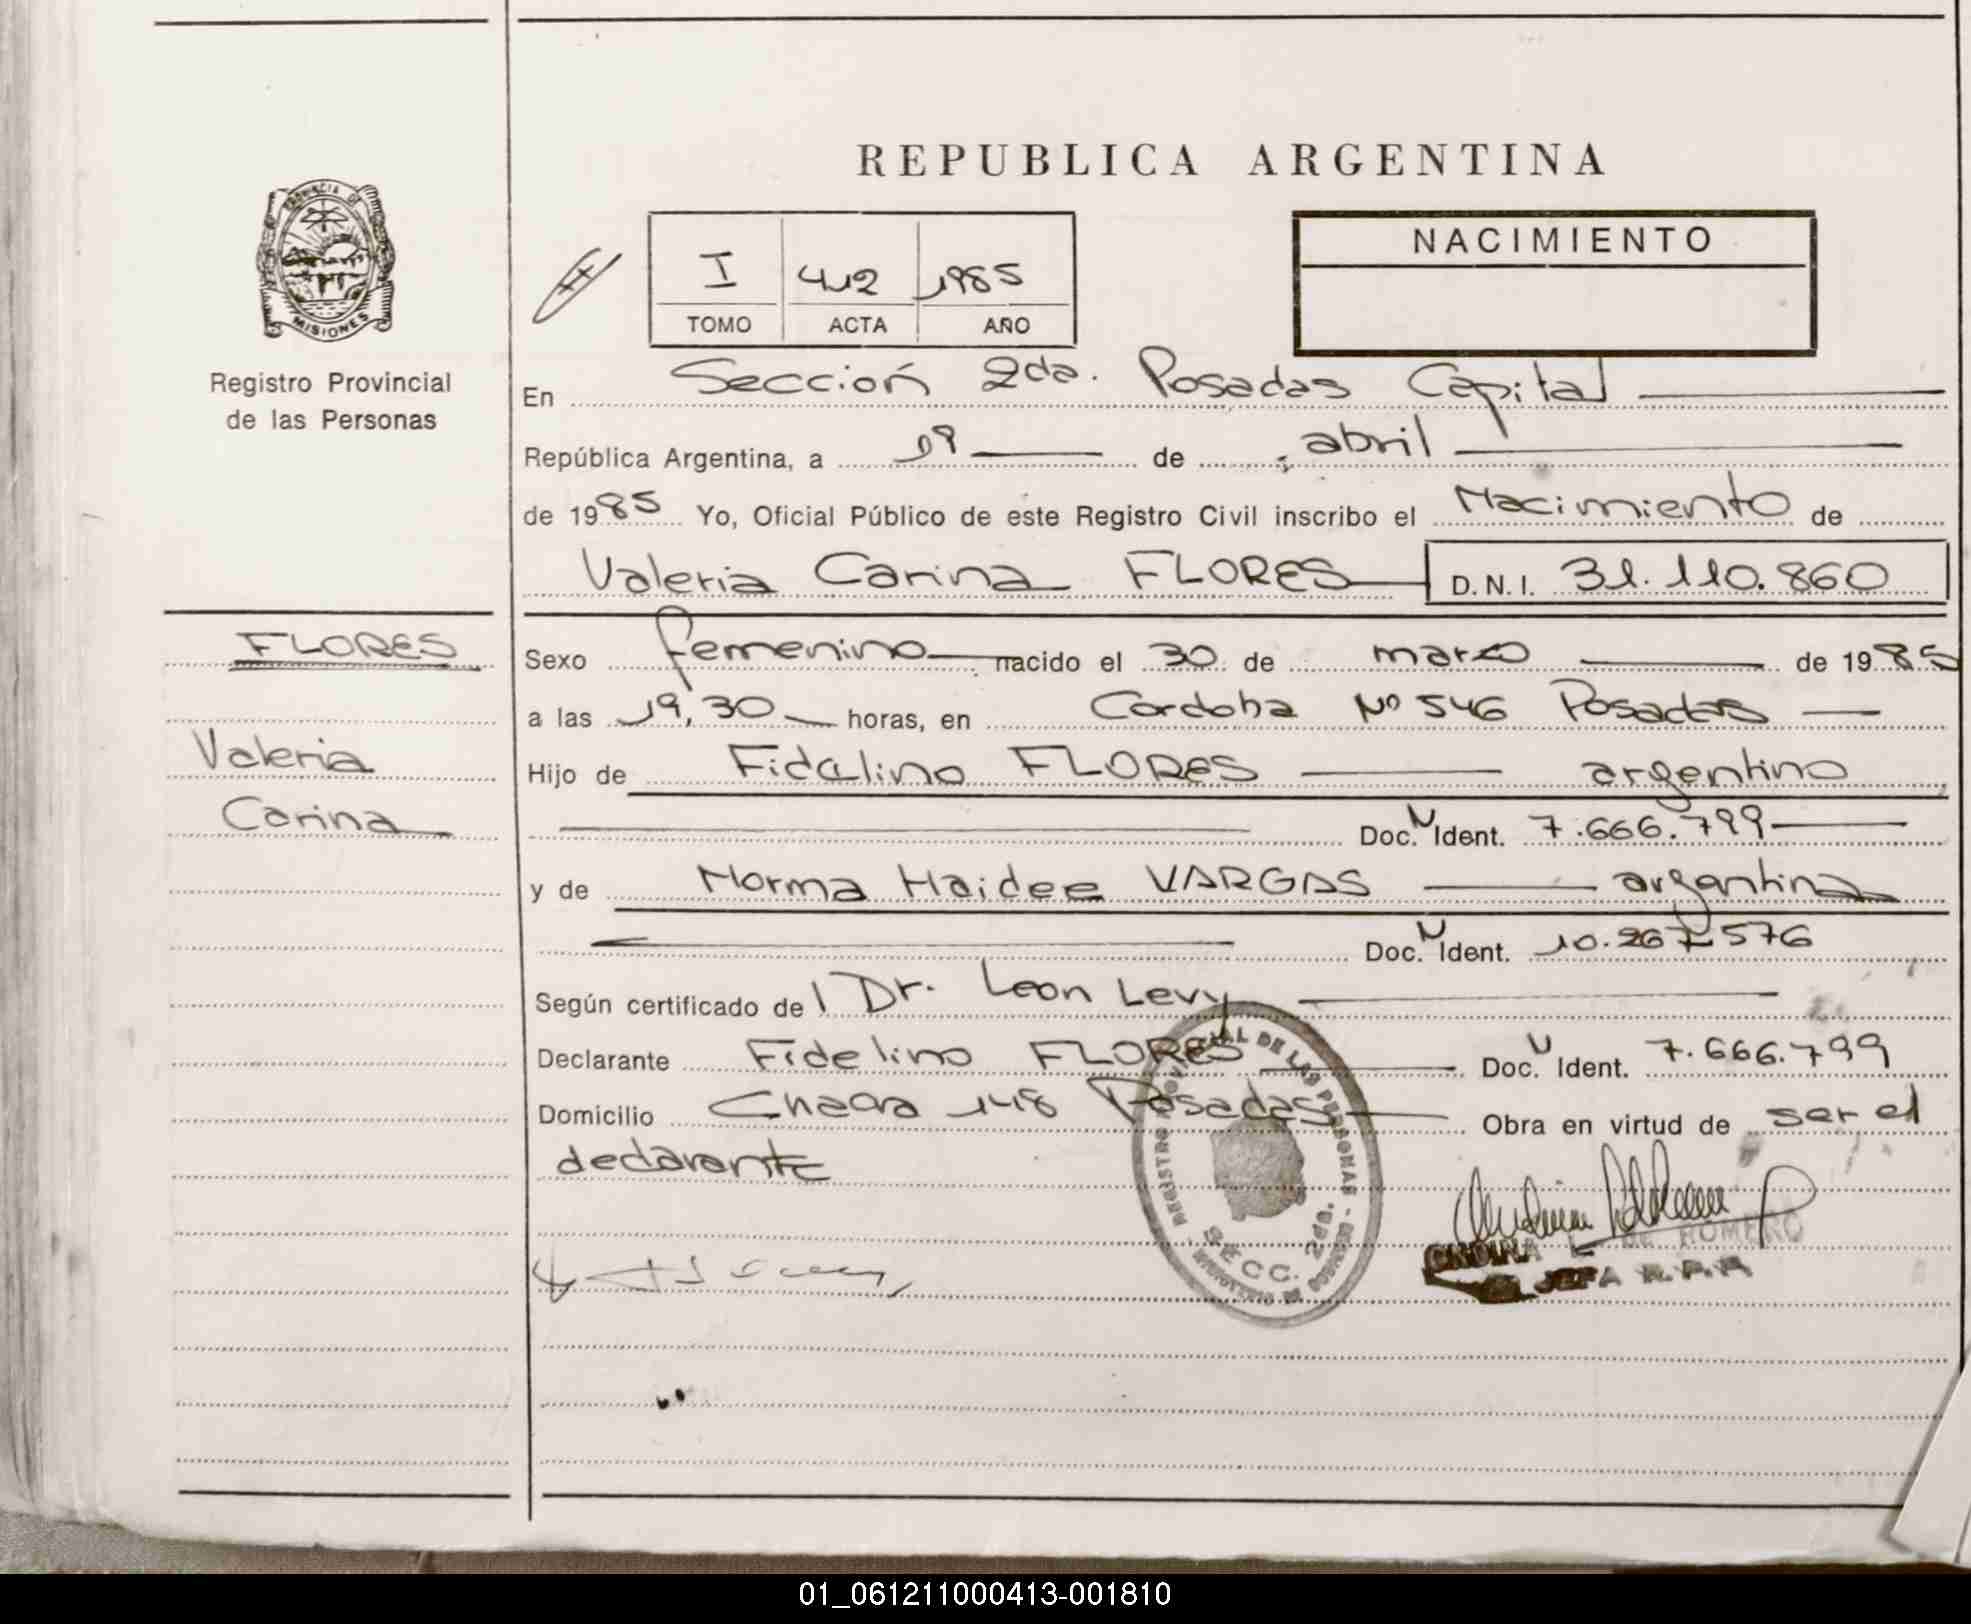 REPUBLICA ARGENTINA
PROVINCIA DE
MISIONES
Registro Provincial
de las Personas
I 412 1985
TOMO ACTA AÑO
NACIMIENTO
En Sección 2da. Posadas Capital
República Argentina, a 19 de abril
de 1985 Yo, Oficial Público de este Registro Civil inscribo el Nacimiento de
Valeria Carina FLORES D.N.I. 31.110.860
FLORES
Valeria
Carina
Sexo femenino nacido el 30 de marzo de 1985
a las 19,30 horas, en Cordoba Nº 546 Posadas
Hijo de Fidelino FLORES argentino
Doc. Ident. 7.666.799
y de Norma Haidee VARGAS argentina
Doc. Ident. 10.267.576
Según certificado del Dr. Leon Levy
Declarante Fidelino FLORES Doc. Ident. 7.666.799
Domicilio Chacra 148 Posadas Obra en virtud de ser el
declarante
REGISTRO PROVINCIAL DE LAS PERSONAS
SECC. 2da.
DE ROMERO
JEFA R.P.P.
01_061211000413-001810